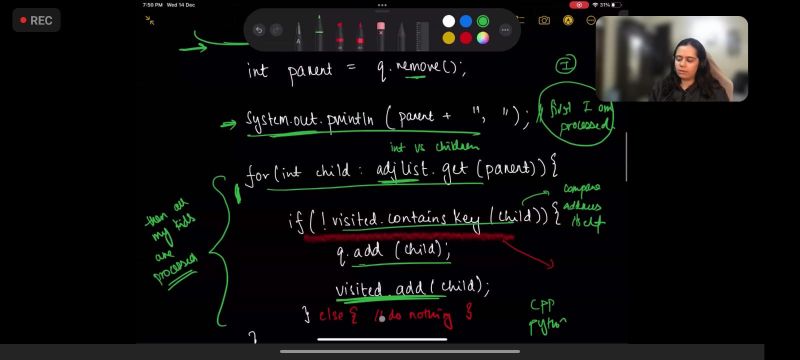 REC
7:50 PM Wed 14 Dec
31%
int parent = q.remove();
I
System.out.println (parent + ", ");
// first I am
processed.
int vs children
for(int child : adjlist.get (parent)){
then all
my kids
are
processed
if( ! visited.containsKey (child)){
compare
address
itself
q.add (child);
visited.add(child);
CPP
python
} else { // do nothing }
}